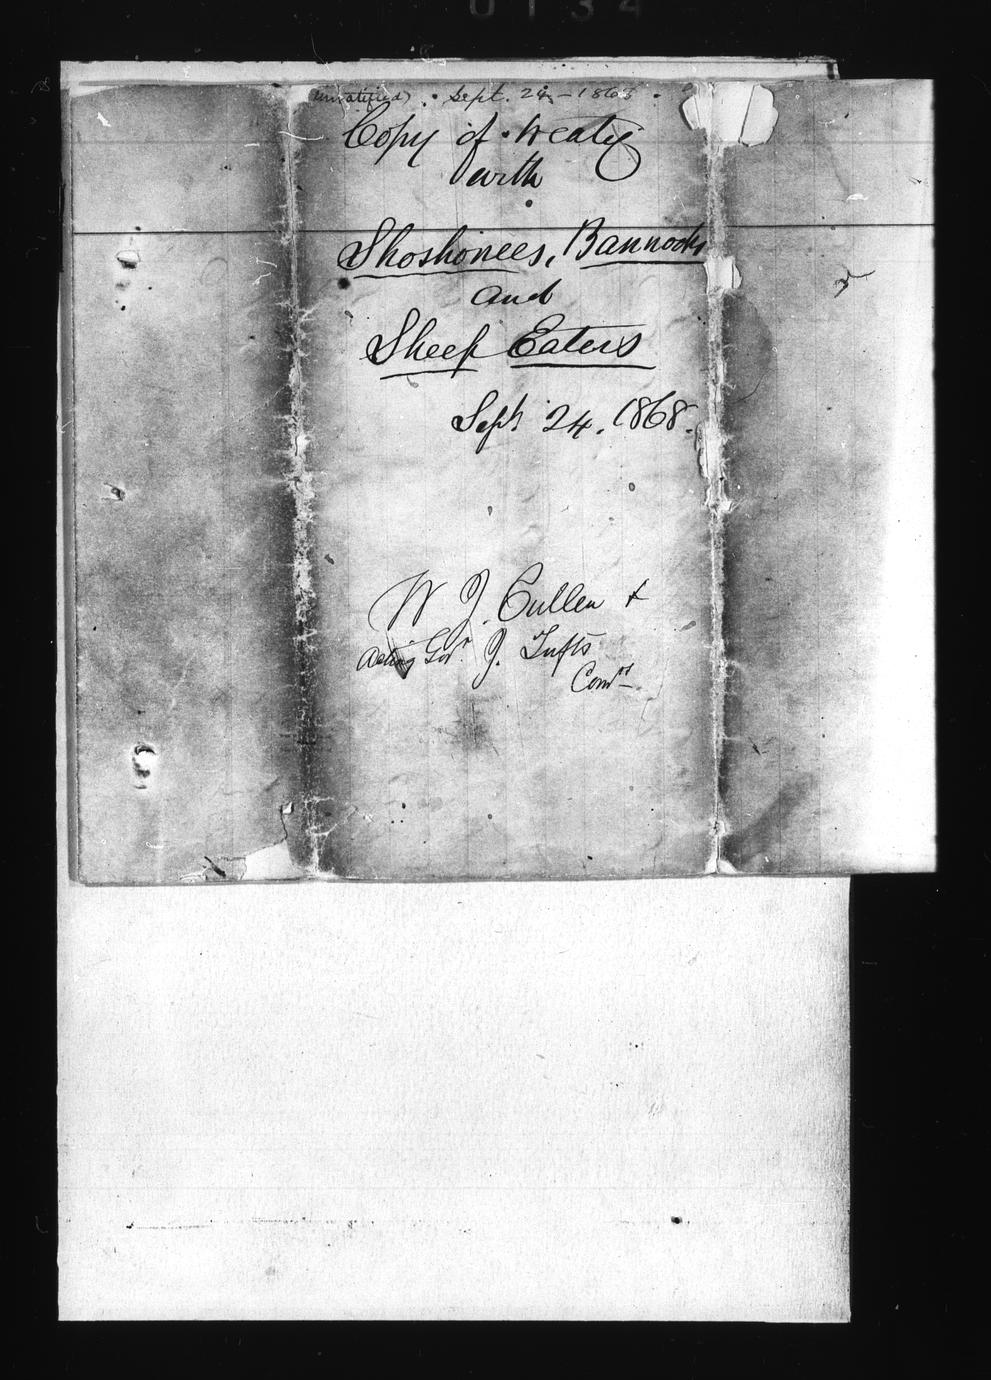 0134
(unratified) Sept. 24 - 1868
Copy of treaty
with
Shoshonees, Bannocks
and
Sheep Eaters
Sept 24, 1868.
W J. Cullen &
Acting Gov. J. Tufts
Comrs